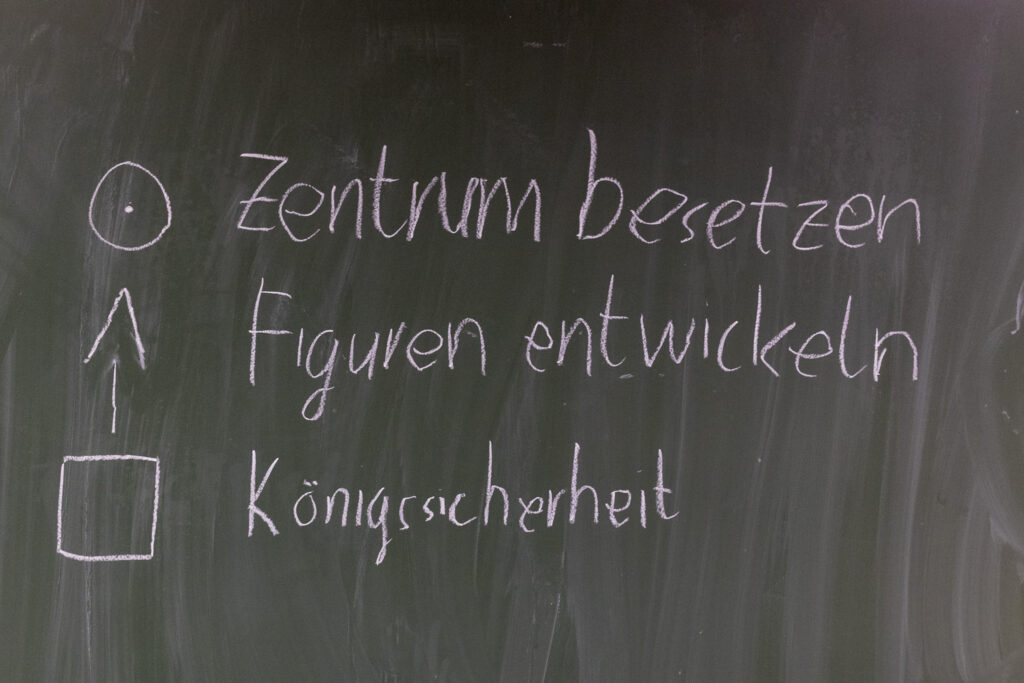 Zentrum besetzen
Figuren entwickeln
Königssicherheit